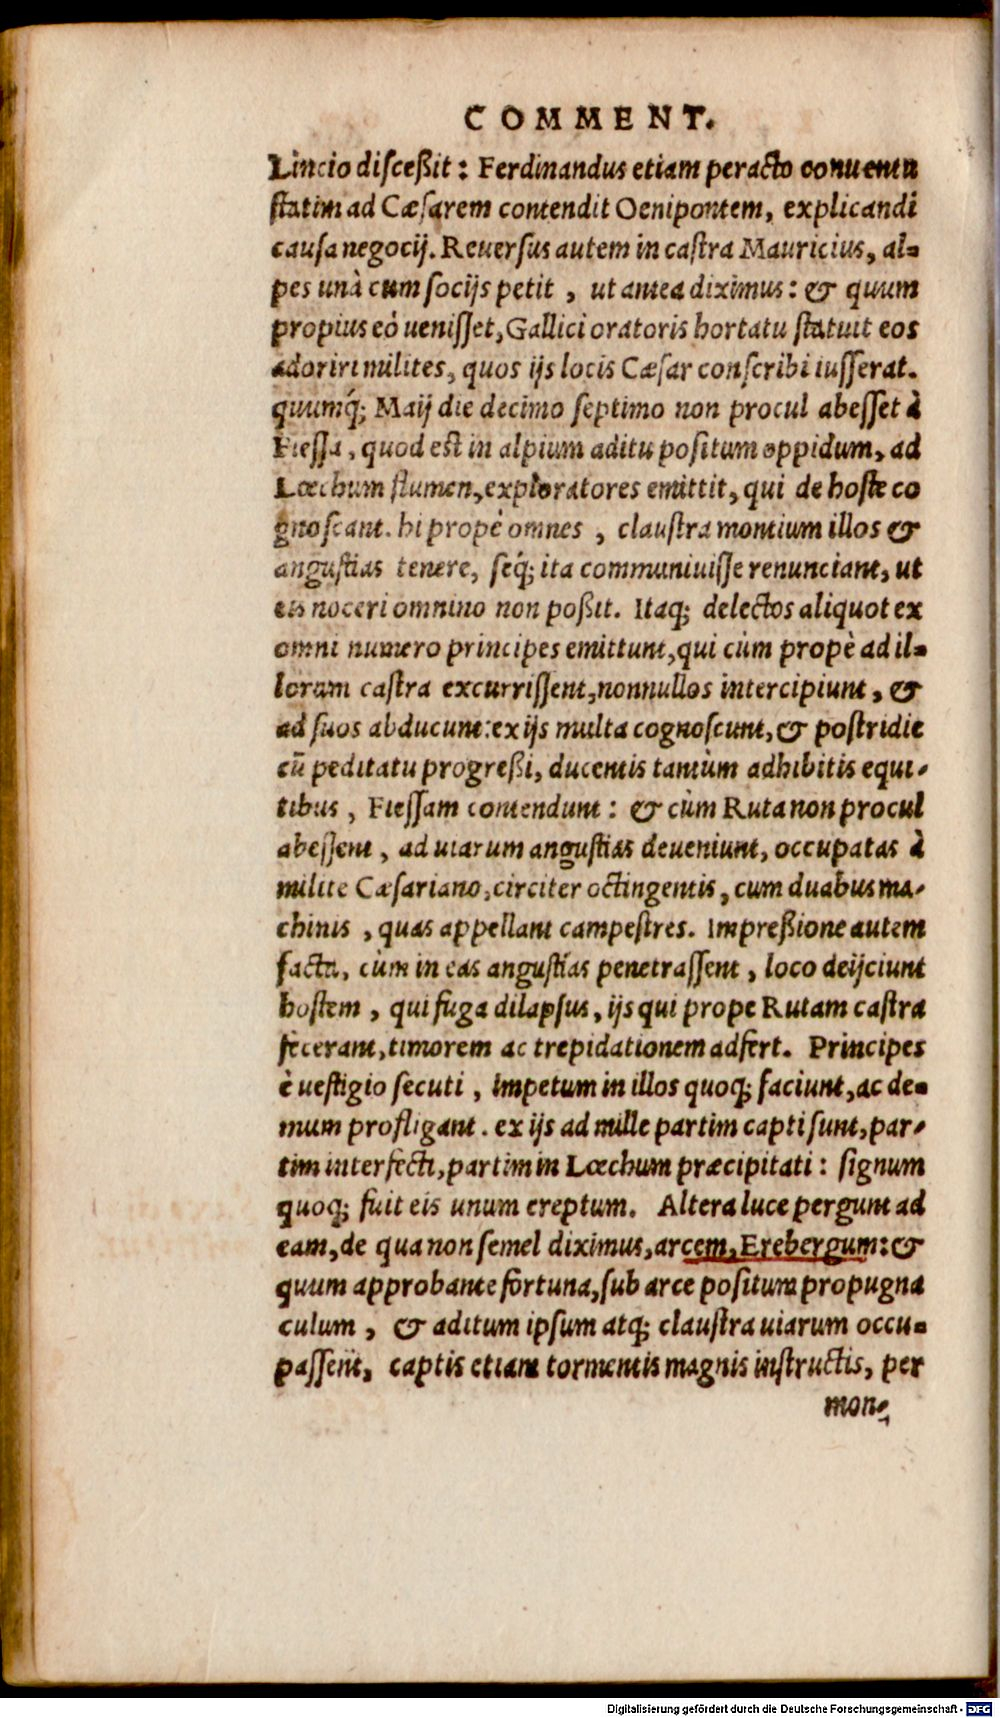 COMMENT.
Lincio disceßit: Ferdinandus etiam peracto conuentu
statim ad Cæsarem contendit Oenipontem, explicandi
causa negocij. Reuersus autem in castra Mauricius, al-
pes unà cum socijs petit , ut antea diximus: & quum
propius eò uenisset, Gallici oratoris hortatu statuit eos
adoriri milites, quos ijs locis Cæsar conscribi iusserat.
quumq́; Maij die decimo septimo non procul abesset à
Fiessa, quod est in alpium aditu positum oppidum, ad
Lœchum flumen, exploratores emittit, qui de hoste co
gnoscant. hi propè omnes , claustra montium illos &
angustias tenere, seq́; ita communiuisse renunciant, ut
eis noceri omnino non poßit. Itaq; delectos aliquot ex
omni numero principes emittunt, qui cùm propè ad il-
lorum castra excurrissent, nonnullos intercipiunt, &
ad suos abducunt: ex ijs multa cognoscunt, & postridie
cū peditatu progreßi, ducentis tantùm adhibitis equi-
tibus, Fiessam contendunt: & cùm Ruta non procul
abessent, ad uiarum angustias deueniunt, occupatas à
milite Cæsariano, circiter octingentis, cum duabus ma-
chinis , quas appellant campestres. Impreßione autem
facta, cùm in eas angustias penetrassent , loco deijciunt
hostem , qui fuga dilapsus, ijs qui prope Rutam castra
fecerant, timorem ac trepidationem adfert. Principes
è uestigio secuti , impetum in illos quoq; faciunt, ac de-
mum profligant. ex ijs ad mille partim capti sunt, par-
tim interfecti, partim in Lœchum præcipitati: signum
quoq; fuit eis unum ereptum. Altera luce pergunt ad
eam, de qua non semel diximus, arcem, Erebergum: &
quum approbante fortuna, sub arce positum propugna
culum , & aditum ipsum atq; claustra uiarum occu-
passent, captis etiam tormentis magnis instructis, per
mon-
Digitalisierung gefördert durch die Deutsche Forschungsgemeinschaft - DFG